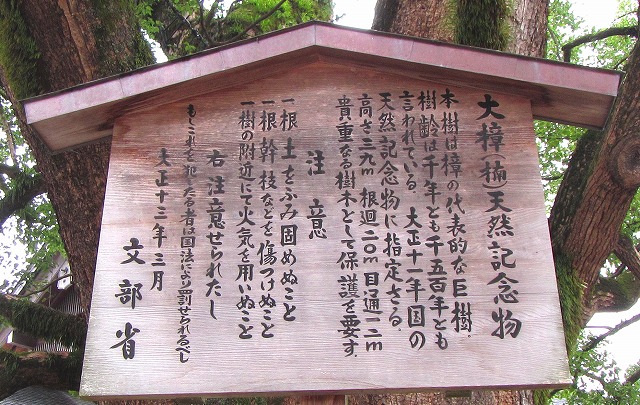 大樟(楠)天然記念物
本樹は樟の代表的な巨樹.
樹齢は千年とも千五百年とも
言われている。大正十一年国の
天然記念物に指定さる.
高さ二九m 根廻二〇m 目通一二m
貴重なる樹木として保護を要す.
注意
一根 土をふみ固めぬこと
一根幹枝などを傷つけぬこと
一樹の附近にて火気を用いぬこと
右注意せられたし
もしこれを犯たる者は国法により罰せられるべし
大正十三年三月
文部省